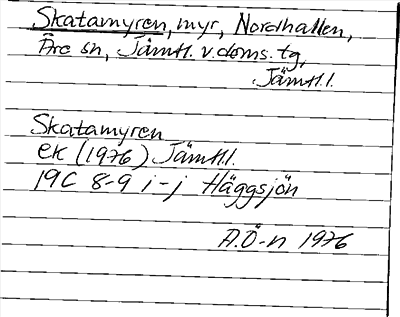 Skatamyren, myr, Nordhallen,
Åre sn, Jämtl. v. doms. tg,
Jämtl. l.
Skatamyren
ek (1976) Jämtl. l.
19C 8-9 i-j Häggsjön
A.Ö-n 1976